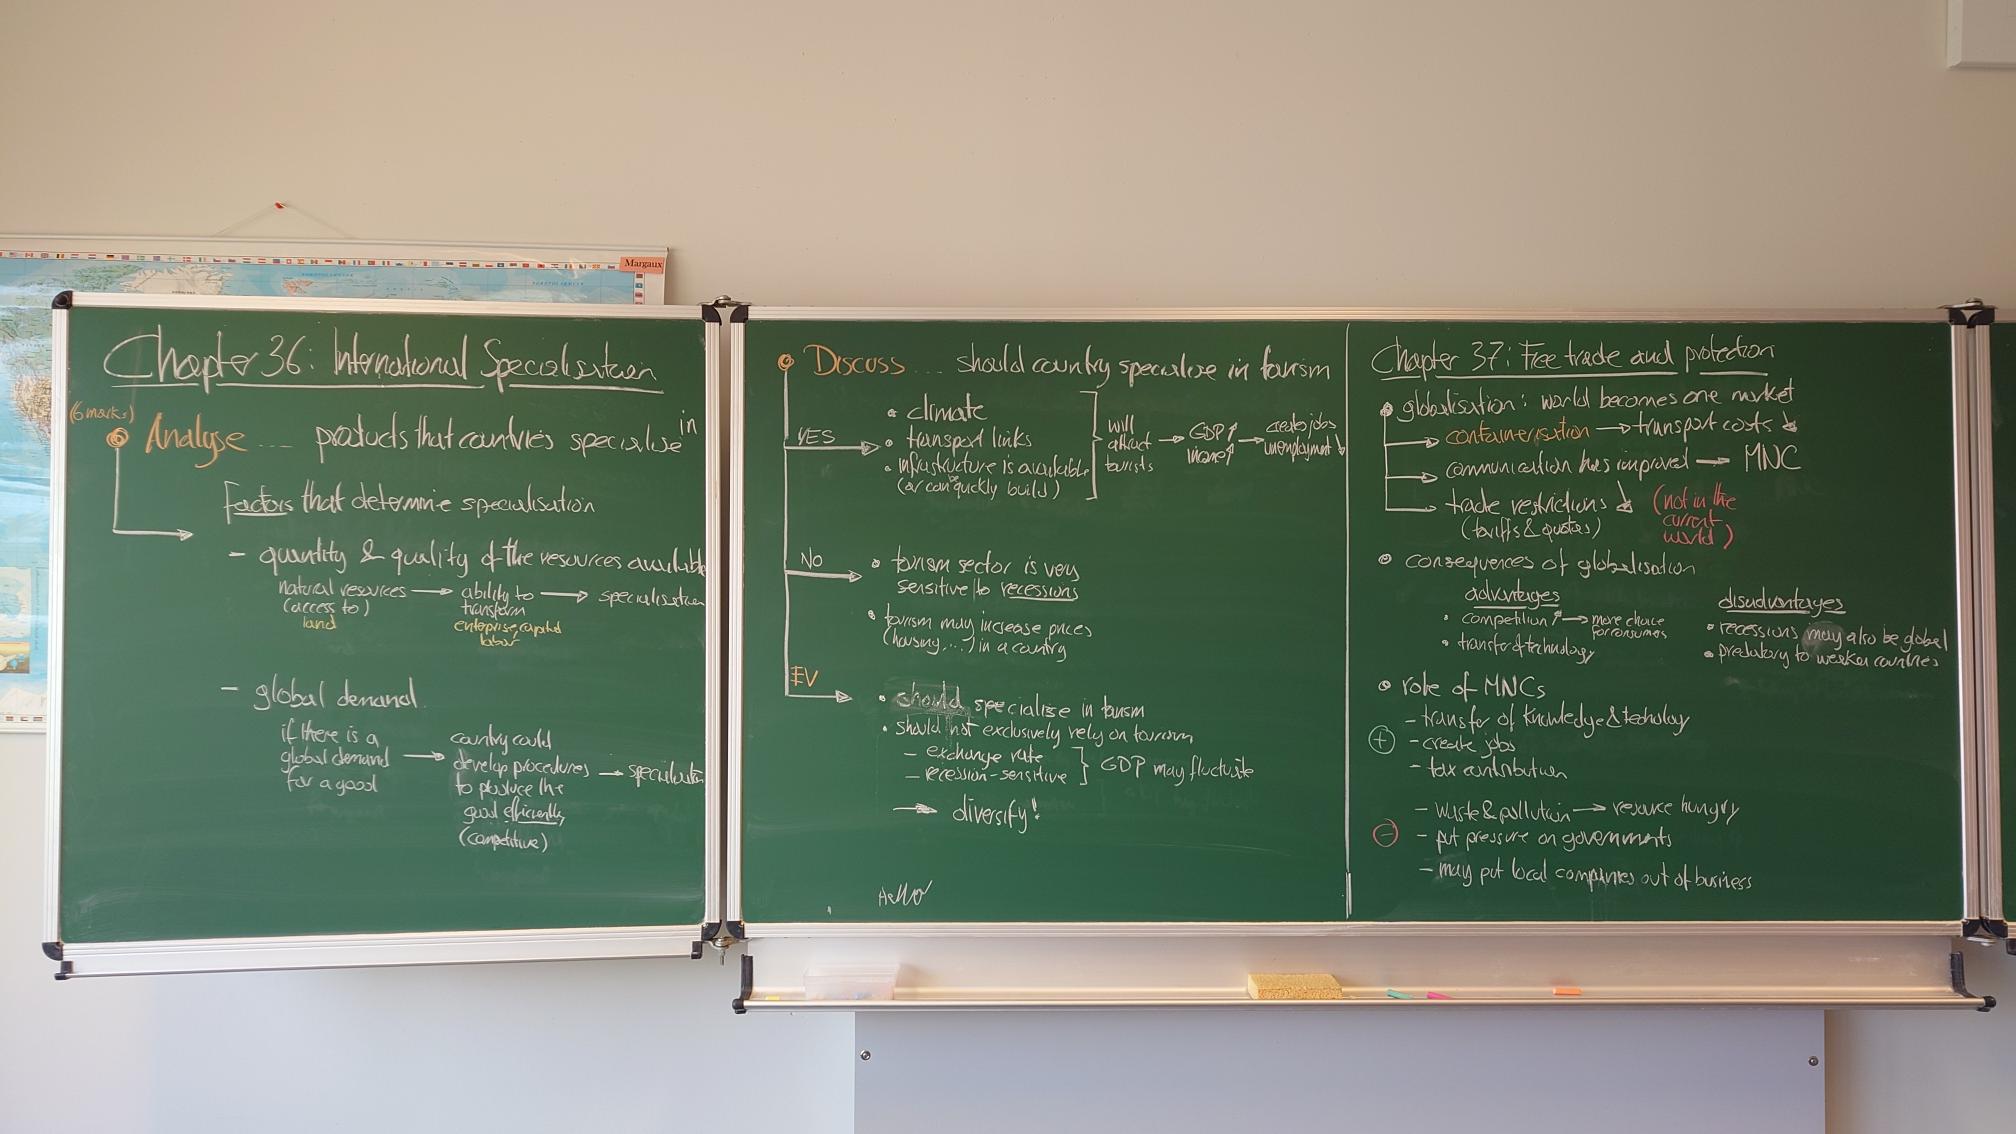 Margaux
Chapter 36: International Specialisation
(6 marks)
Analyse .... products that countries specialise in
Factors that determine specialisation
- quantity & quality of the resources available
natural resources → ability to → specialisation
(access to) transform
land enterprise, capital
labor
- global demand
if there is a
global demand
for a good
→
country could
develop procedures
to produce the
good efficiently
(competitive)
→ specialisation
Discuss .... should country specialise in tourism
YES
• climate
• transport links
• infrastructure is available
(or can be quickly build)
will
attract
tourists
→ GDP↑
income↑
→ creates jobs
unemployment ↓
NO
• tourism sector is very
sensitive to recessions
• tourism may increase prices
(housing, ...) in a country
EV
• should specialise in tourism
• should not exclusively rely on tourism
- exchange rate
- recession-sensitive
} GDP may fluctuate
→ diversify!
Hello
Chapter 37: Free trade and protection
globalisation: world becomes one market
→ containerisation → transport costs ↘
→ communication has improved → MNC
trade restrictions ↘ (not in the
(tariffs & quotas) current
world)
consequences of globalisation
advantages
• competition↑ → more choice
for consumers
• transfer of technology
disadvantages
• recessions may also be global
• predatory to weaker countries
role of MNCs
- transfer of knowledge & technology
+ - create jobs
- tax contribution
- waste & pollution → resource hungry
- - put pressure on governments
- may put local companies out of business